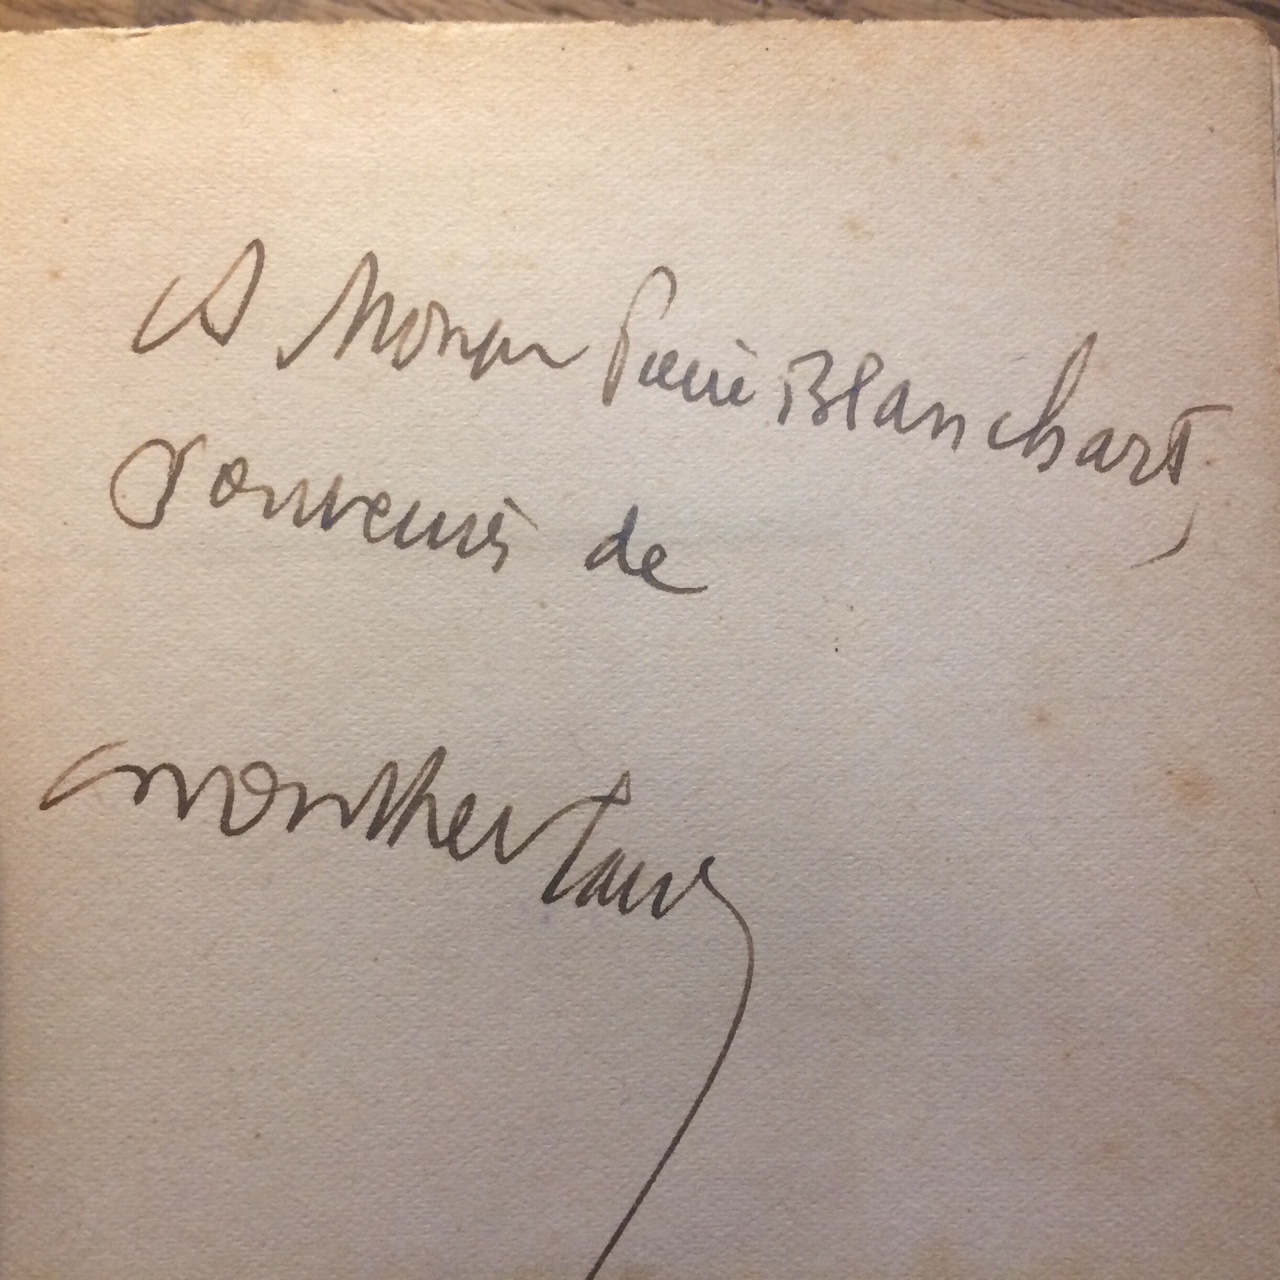 A Monsieur Pierre Blanchart,
Souvenirs de
Montherlant